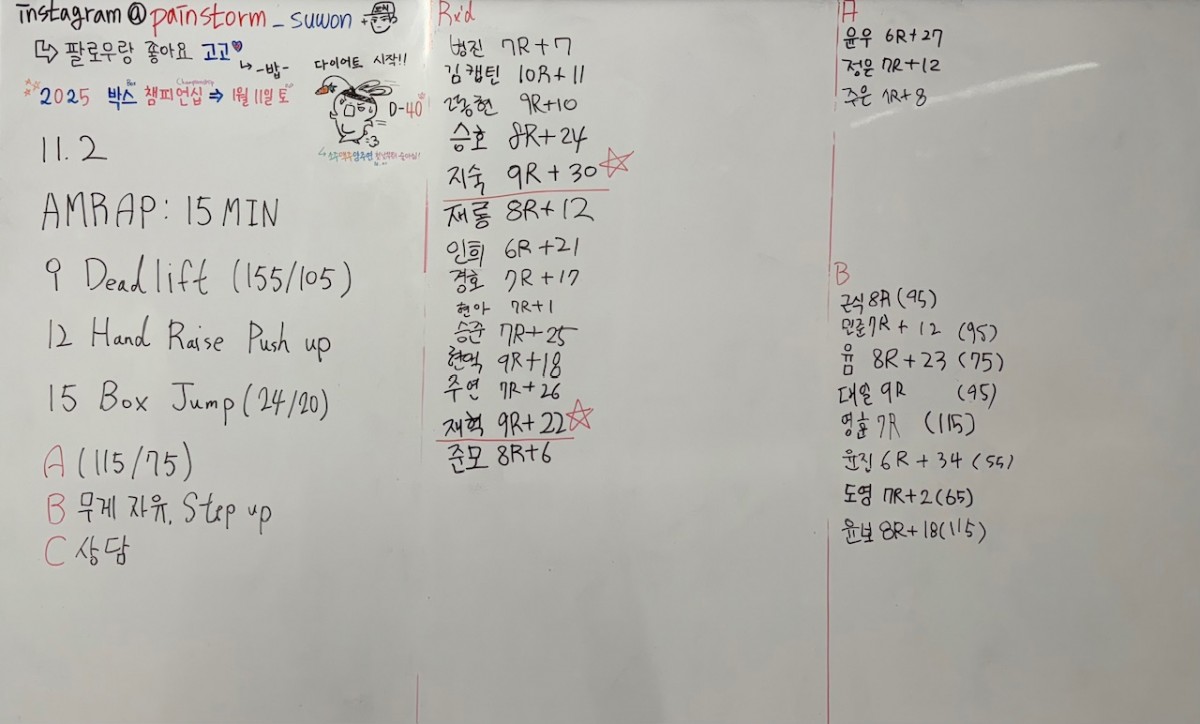 instagram @painstorm_suwon
팔로우랑 좋아요 고고
-밥-
다이어트 시작!!
D-40
Box
Championship
2025 박스 챔피언십 ⇒ 1월 11일 토
11.2
AMRAP: 15 MIN
9 Deadlift (155/105)
12 Hand Raise Push up
15 Box Jump (24/20)
A (115/75)
B 무게 자유, Step up
C 상담
Rx'd
병진 7R+7
김캡틴 10R+11
광현 9R+10
승호 8R+24
지숙 9R+30
재롱 8R+12
인희 6R+21
경호 7R+17
현아 7R+1
승준 7R+25
현택 9R+18
주연 7R+26
재혁 9R+22
준모 8R+6
A
윤우 6R+27
정은 7R+12
주은 7R+8
B
근식 8R (95)
민준 7R+12 (95)
윰 8R+23 (75)
대일 9R (95)
영훈 7R (115)
윤진 6R+34 (55)
도영 7R+2 (65)
윤보 8R+18 (115)